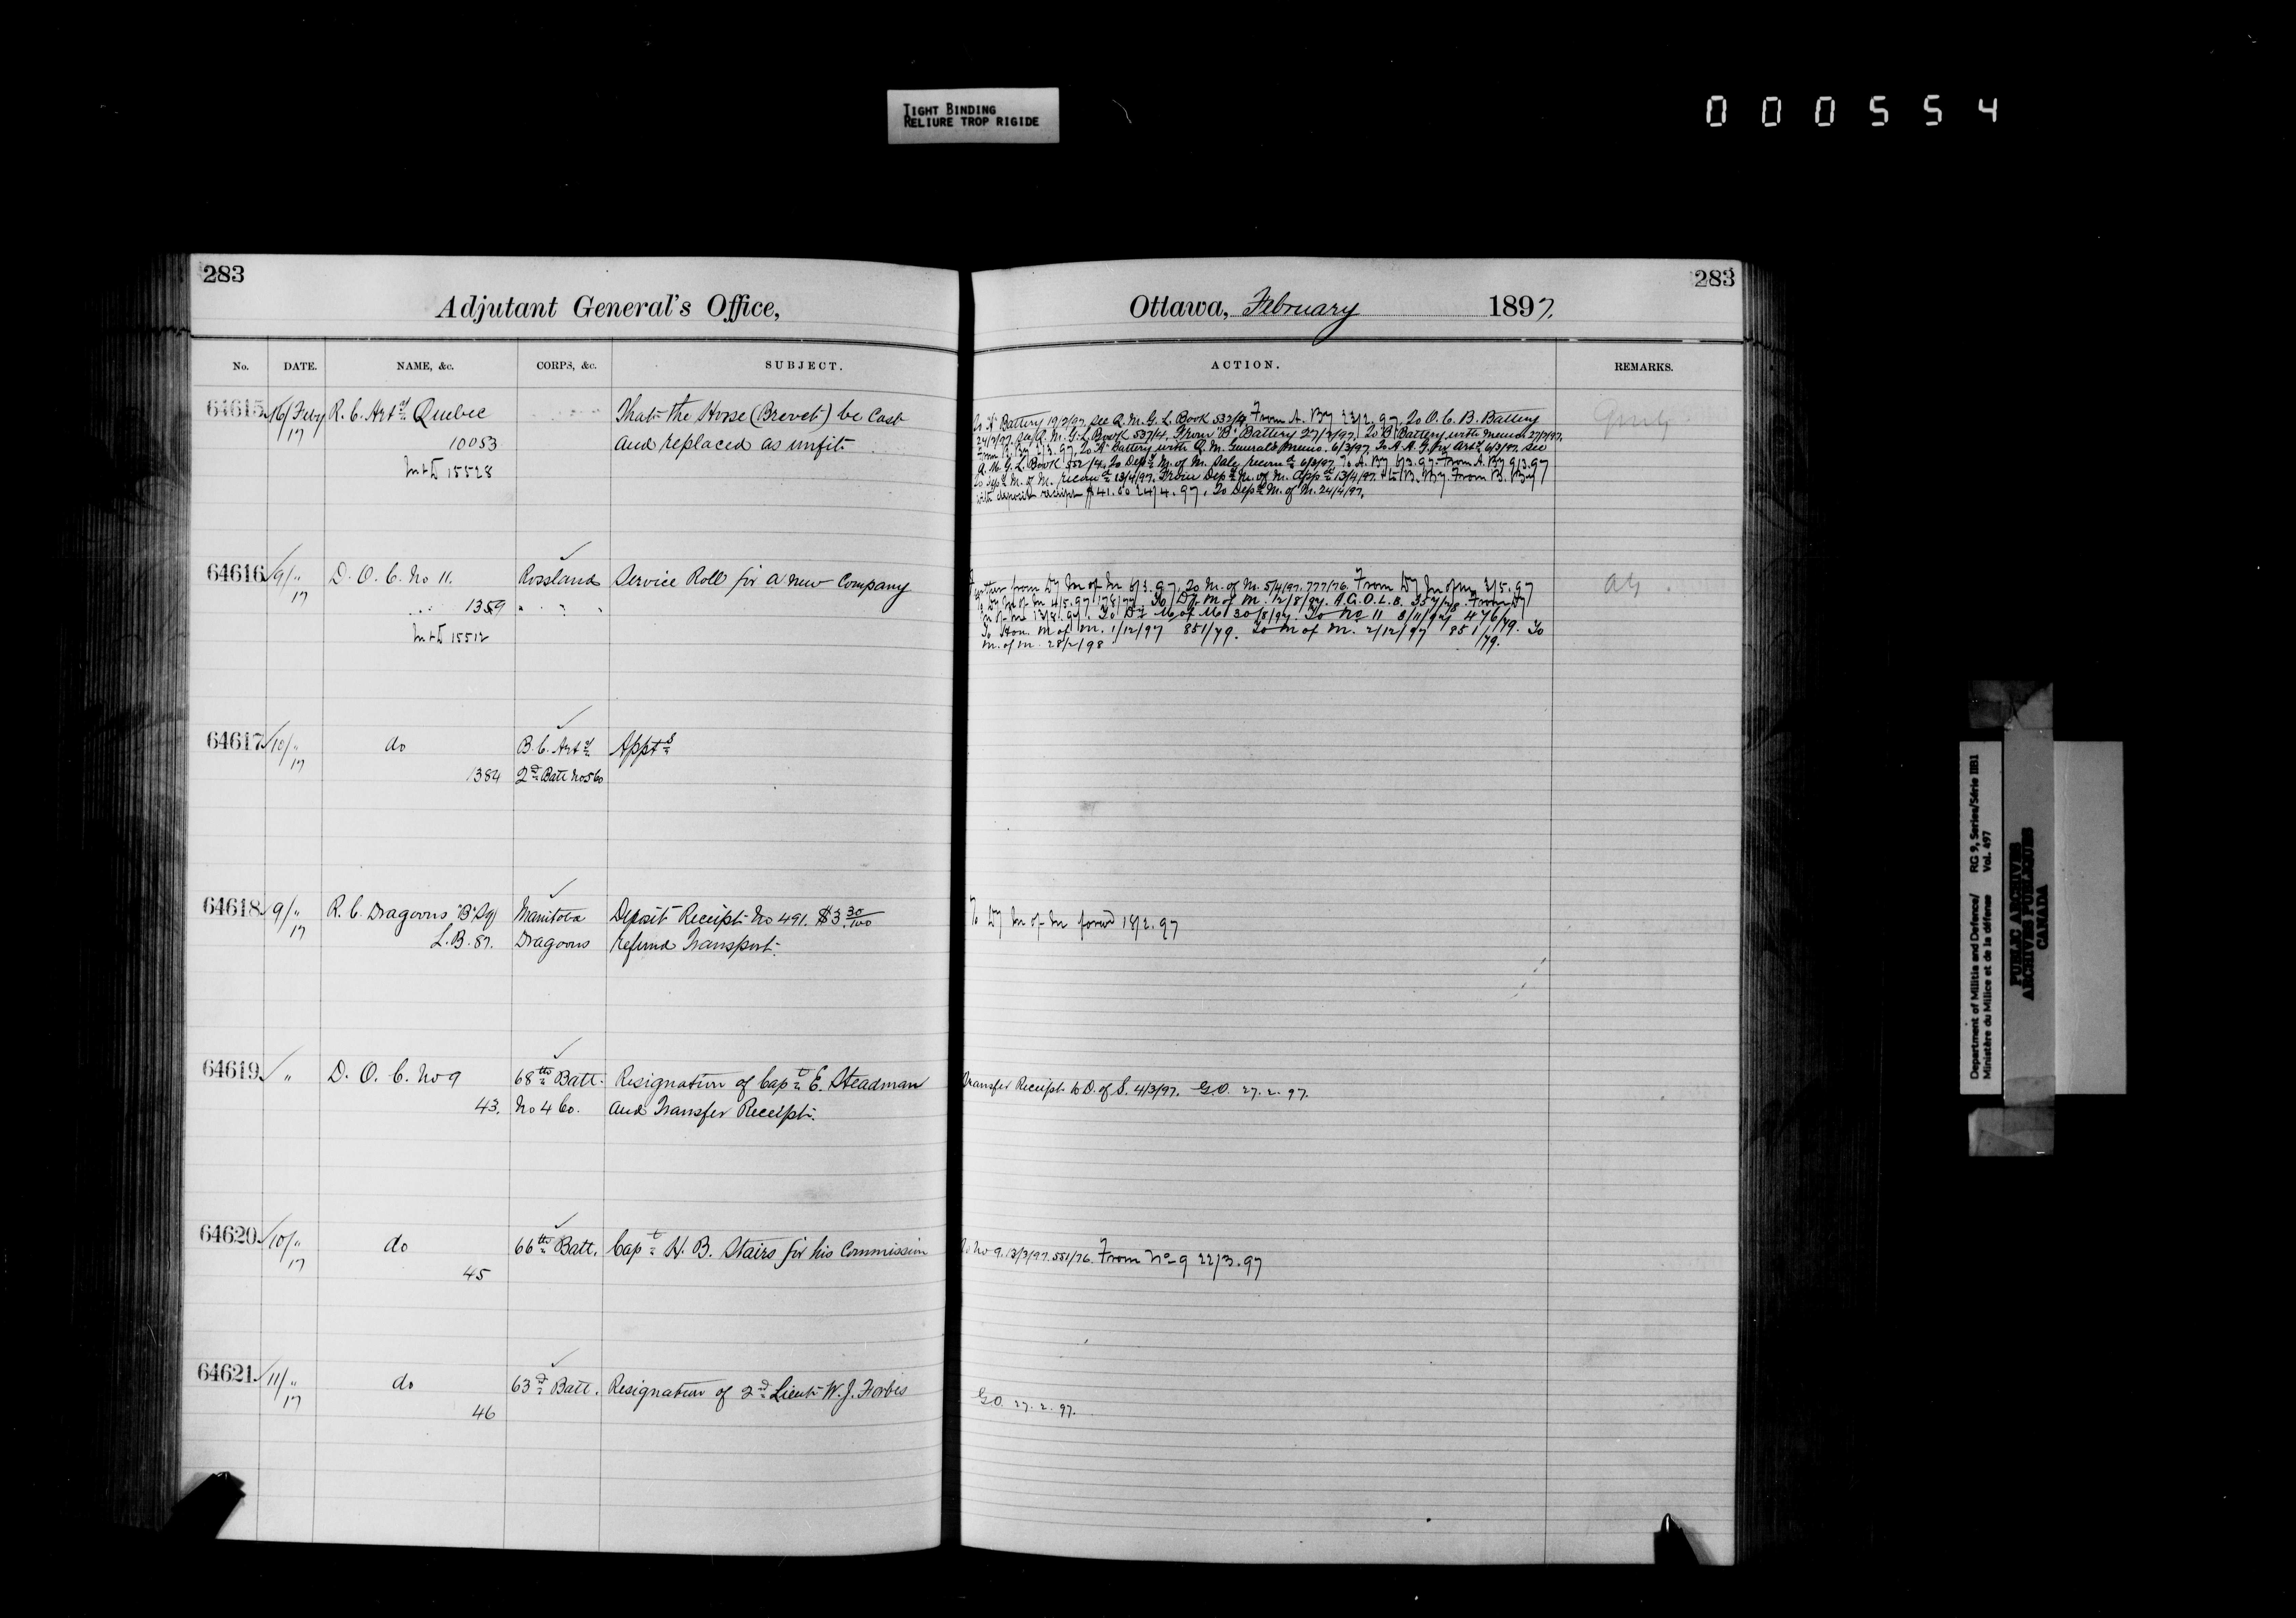 TIGHT BINDING
RELIURE TROP RIGIDE
000554
283
Adjutant General's Office,
No. DATE. NAME, &c. CORPS, &c. SUBJECT.
64615 16/Feby R. C. Arty Quebec That the Horse (Brevet) be Cast
17 10053 and replaced as unfit
M+D 15528
64616 9/" D. O. C. No 11. Rossland Service Roll for a new Company
17 1359
M+D 15512
64617 10/" do B. C. Arty Appts
17 1384 2nd Batt No 5 Co
64618 9/" R. C. Dragoons, "B" Sq Manitoba Deposit Receipt No 491. $3 30/100
17 L. B. 87. Dragoons refund Transport.
64619 " D. O. C. No 9 68th Batt. Resignation of Capt E. Steadman
43. No 4 Co. and Transfer Receipt.
64620 10/" do 66th Batt. Capt H. B. Stairs for his Commission
17 45
64621 11/" do 63d Batt. Resignation of 2d Lieut W. J. Forbes
17 46
283
Ottawa, February 1897.
ACTION. REMARKS.
"A" Battery 19/2/97. See Q. M. G. L. Book 532/4 From A. By 23/2.97. To O. C. B. Battery
24/2/97. See Q. M. G. L. Book 537/4. From "B" Battery 27/2/97. To "B" Battery with memo 27/2/97.
From B. By 2/3.97. To "A" Battery with Q. M. General's memo. 6/3/97. To A. A. G. for Arty 6/3/97. See
Q. M. G. L. Book 552/4. To Depy M. of M. Daly recomd 6/3/97. To A. By 6/3.97. From A. By 9/3.97
To Depy M. of M. recomd 13/4/97. From Depy M. of M. appd 13/4/97. + to B. By. From B. By
with deposit receipt $41.00 24/4.97. To Depy M. of M. 24/4/97.
Further from Dy M of M 6/3.97. To M. of M. 5/4/97. 777/76. From Dy M of M 3/5.97
To Dy M of M 4/5.97 178/77 To Dy. M of M. 12/8/97. A.G.O.L.B. 357/78. From Dy
M of M 13/8.97. To Dy M of M 30/8/97. To No 11 8/11/97 476/79.
To Hon. M of M. 1/12/97 851/79. To M of M. 2/12/97 851/79. To
M. of M. 28/2/98
AG
To Dy M of M forwd 18/2.97
Transfer Receipt to D. of S. 4/3/97. G.O. 27.2.97.
To No 9. 13/3/97. 551/76. From No 9 22/3.97
G.O. 27.2.97.
Department of Militia and Defence/ RG 9, Series/Série IIB1
Ministère du Milice et de la défense Vol. 497
PUBLIC ARCHIVES
ARCHIVES PUBLIQUES
CANADA